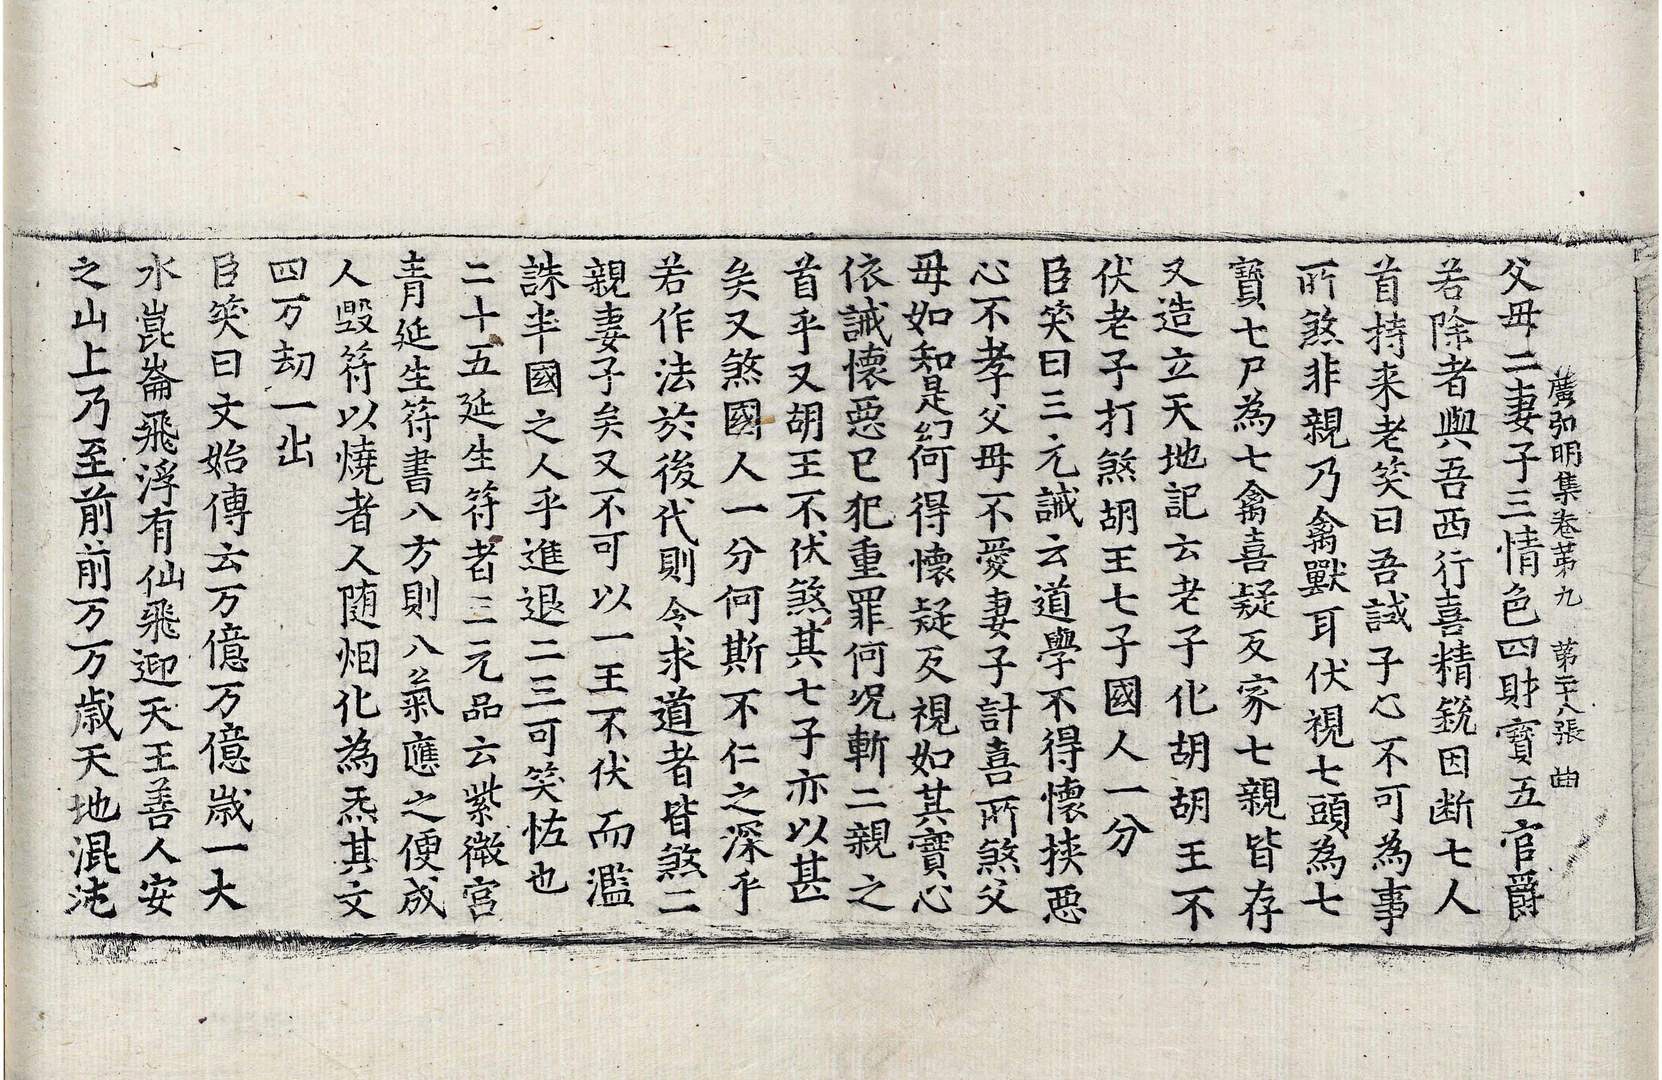 廣弘明集卷第九　第二十八張　曲
父母二妻子三情色四財寶五官爵
若除者與吾西行喜精銳因断七人
首持来老笑曰吾試子心不可為事
所煞非親乃禽獸耳伏視七頭為七
寶七尸為七禽喜疑反家七親皆存
又造立天地記云老子化胡胡王不
伏老子打煞胡王七子國人一分
臣笑曰三元誡云道學不得懷挾惡
心不孝父母不愛妻子計喜所煞父
母如知是幻何得懷疑反視如其寶心
依誡懷惡已犯重罪何況斬二親之
首乎又胡王不伏煞其七子亦以甚
矣又煞國人一分何斯不仁之深乎
若作法於後代則令求道者皆煞二
親妻子矣又不可以一王不伏而濫
誅半國之人乎進退二三可笑恠也
二十五延生符者三元品云紫微宮
青延生符書八方則八氣應之便成
人毀符以燒者人随烟化為炁其文
四万劫一出
臣笑曰文始傳云万億万億歲一大
水崑崙飛浮有仙飛迎天王善人安
之山上乃至前前万万歲天地混沌